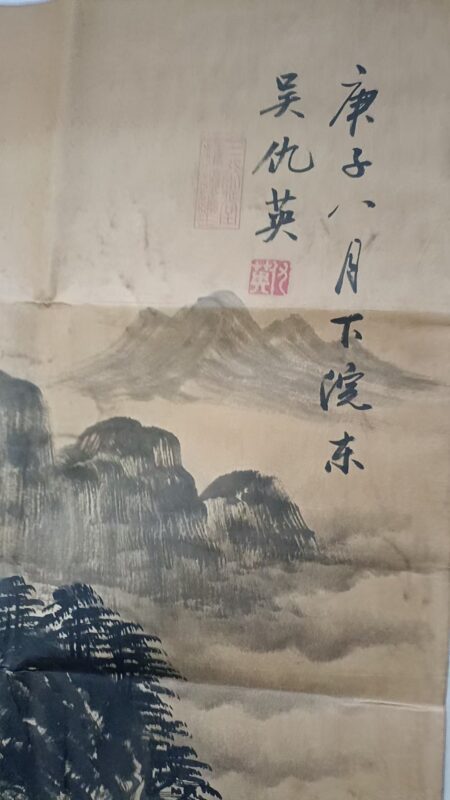 庚子八月下浣东
吴仇英
仇英